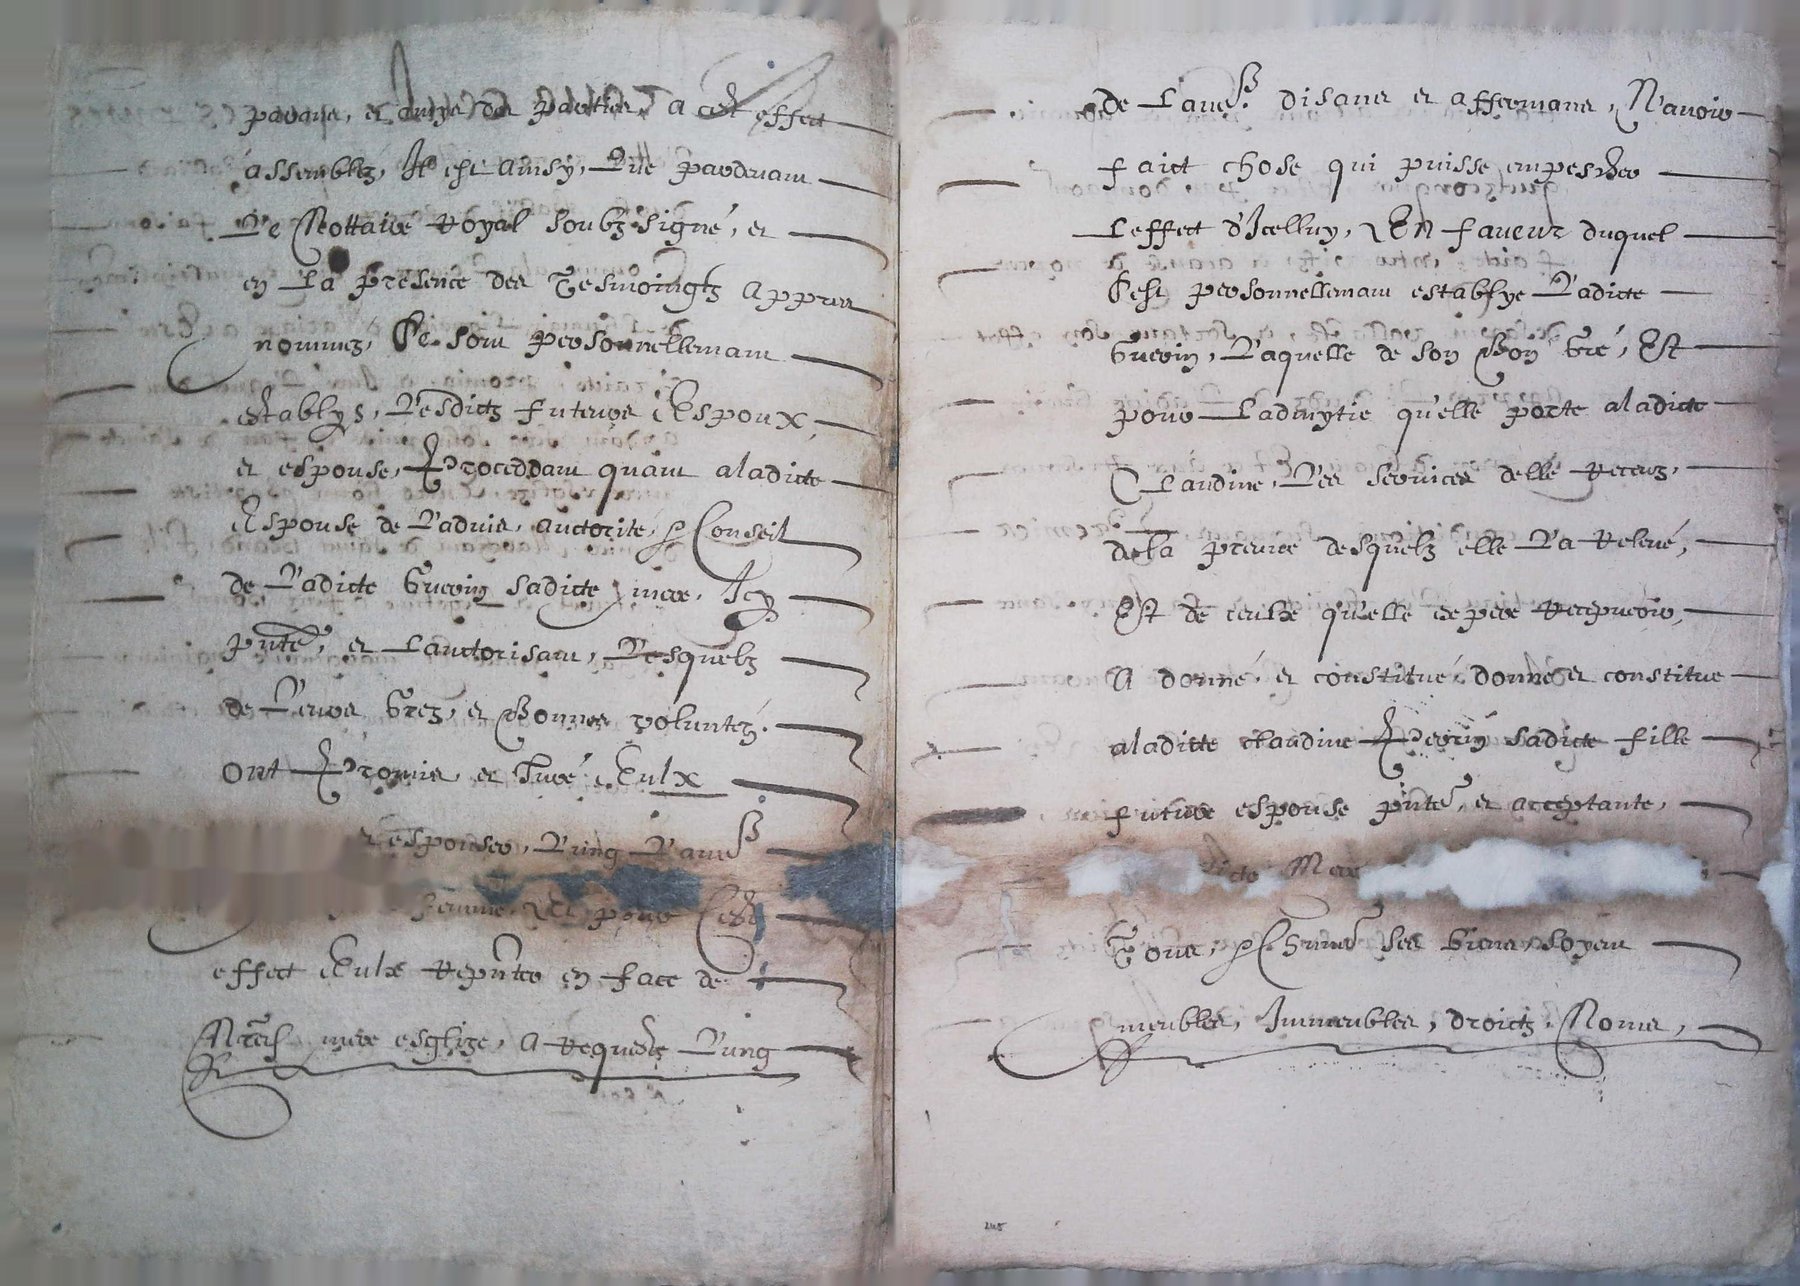 parans, et amys des parties A cest effect
assemblez, Il est ainsy, Que pardevant
Le Nottaire Royal soubz signé, et
en La presence des Tesmoingtz Appres
nommez, Se sont personnellemant
establys, Lesdictz futeurs Espoux,
et espouse, Proceddant quant a ladicte
Espouse de L'advis, auctorité, & Conseil
de L'adicte Guerin sadicte mere, Icy
pnte, et L'auctorisant, Lesquelz
de Leurs Grez, et Bonnes voluntez.
ont Promis et Juré Eulx
et espouser, L'ung L'autre
femme, Et pour Cest
effect Eulx Repnter en face de
Nre mere esglize, A Requeste L'ung
de L'autre. disans et affermans, N'avoir
faict chose qui puisse empescher
L'effect d'Icelluy, EN faveur duquel
S'est personnellemant establye L'adicte
Guerin, L'aquelle de son Bon Gré, Et
pour L'admytié qu'elle porte a ladicte
Claudine, Des services d'elle Receuz,
de la preuve desquelz elle L'a Relevé,
Et de ceulx qu'elle espere Recepvoir,
A donné, et constitué, donne et constitue
a ladicte claudine sadicte fille
future espouse pnte, et acceptante,
Mere
Tous, & Chuns ses biens soyent
meubles, Immeubles, droictz, Noms,
245